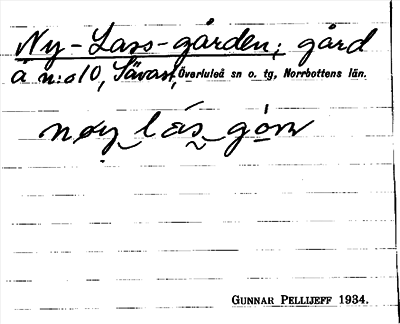 Ny-Lass-gården; gård
å n:o 10, Sävast, Överluleå sn o. tg, Norrbottens län.
nøy lás gón
GUNNAR PELLIJEFF 1934.